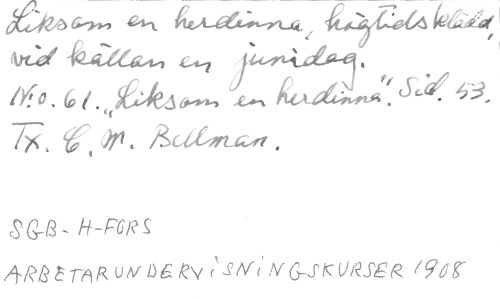 Liksom en herdinna, högtidsklädd,
vid källan en junidag.
N:o. 61. „Liksom en herdinna". Sid. 53.
Tx. C. M. Bellman.
SGB - H-FORS
ARBETARUNDERVISNINGSKURSER 1908